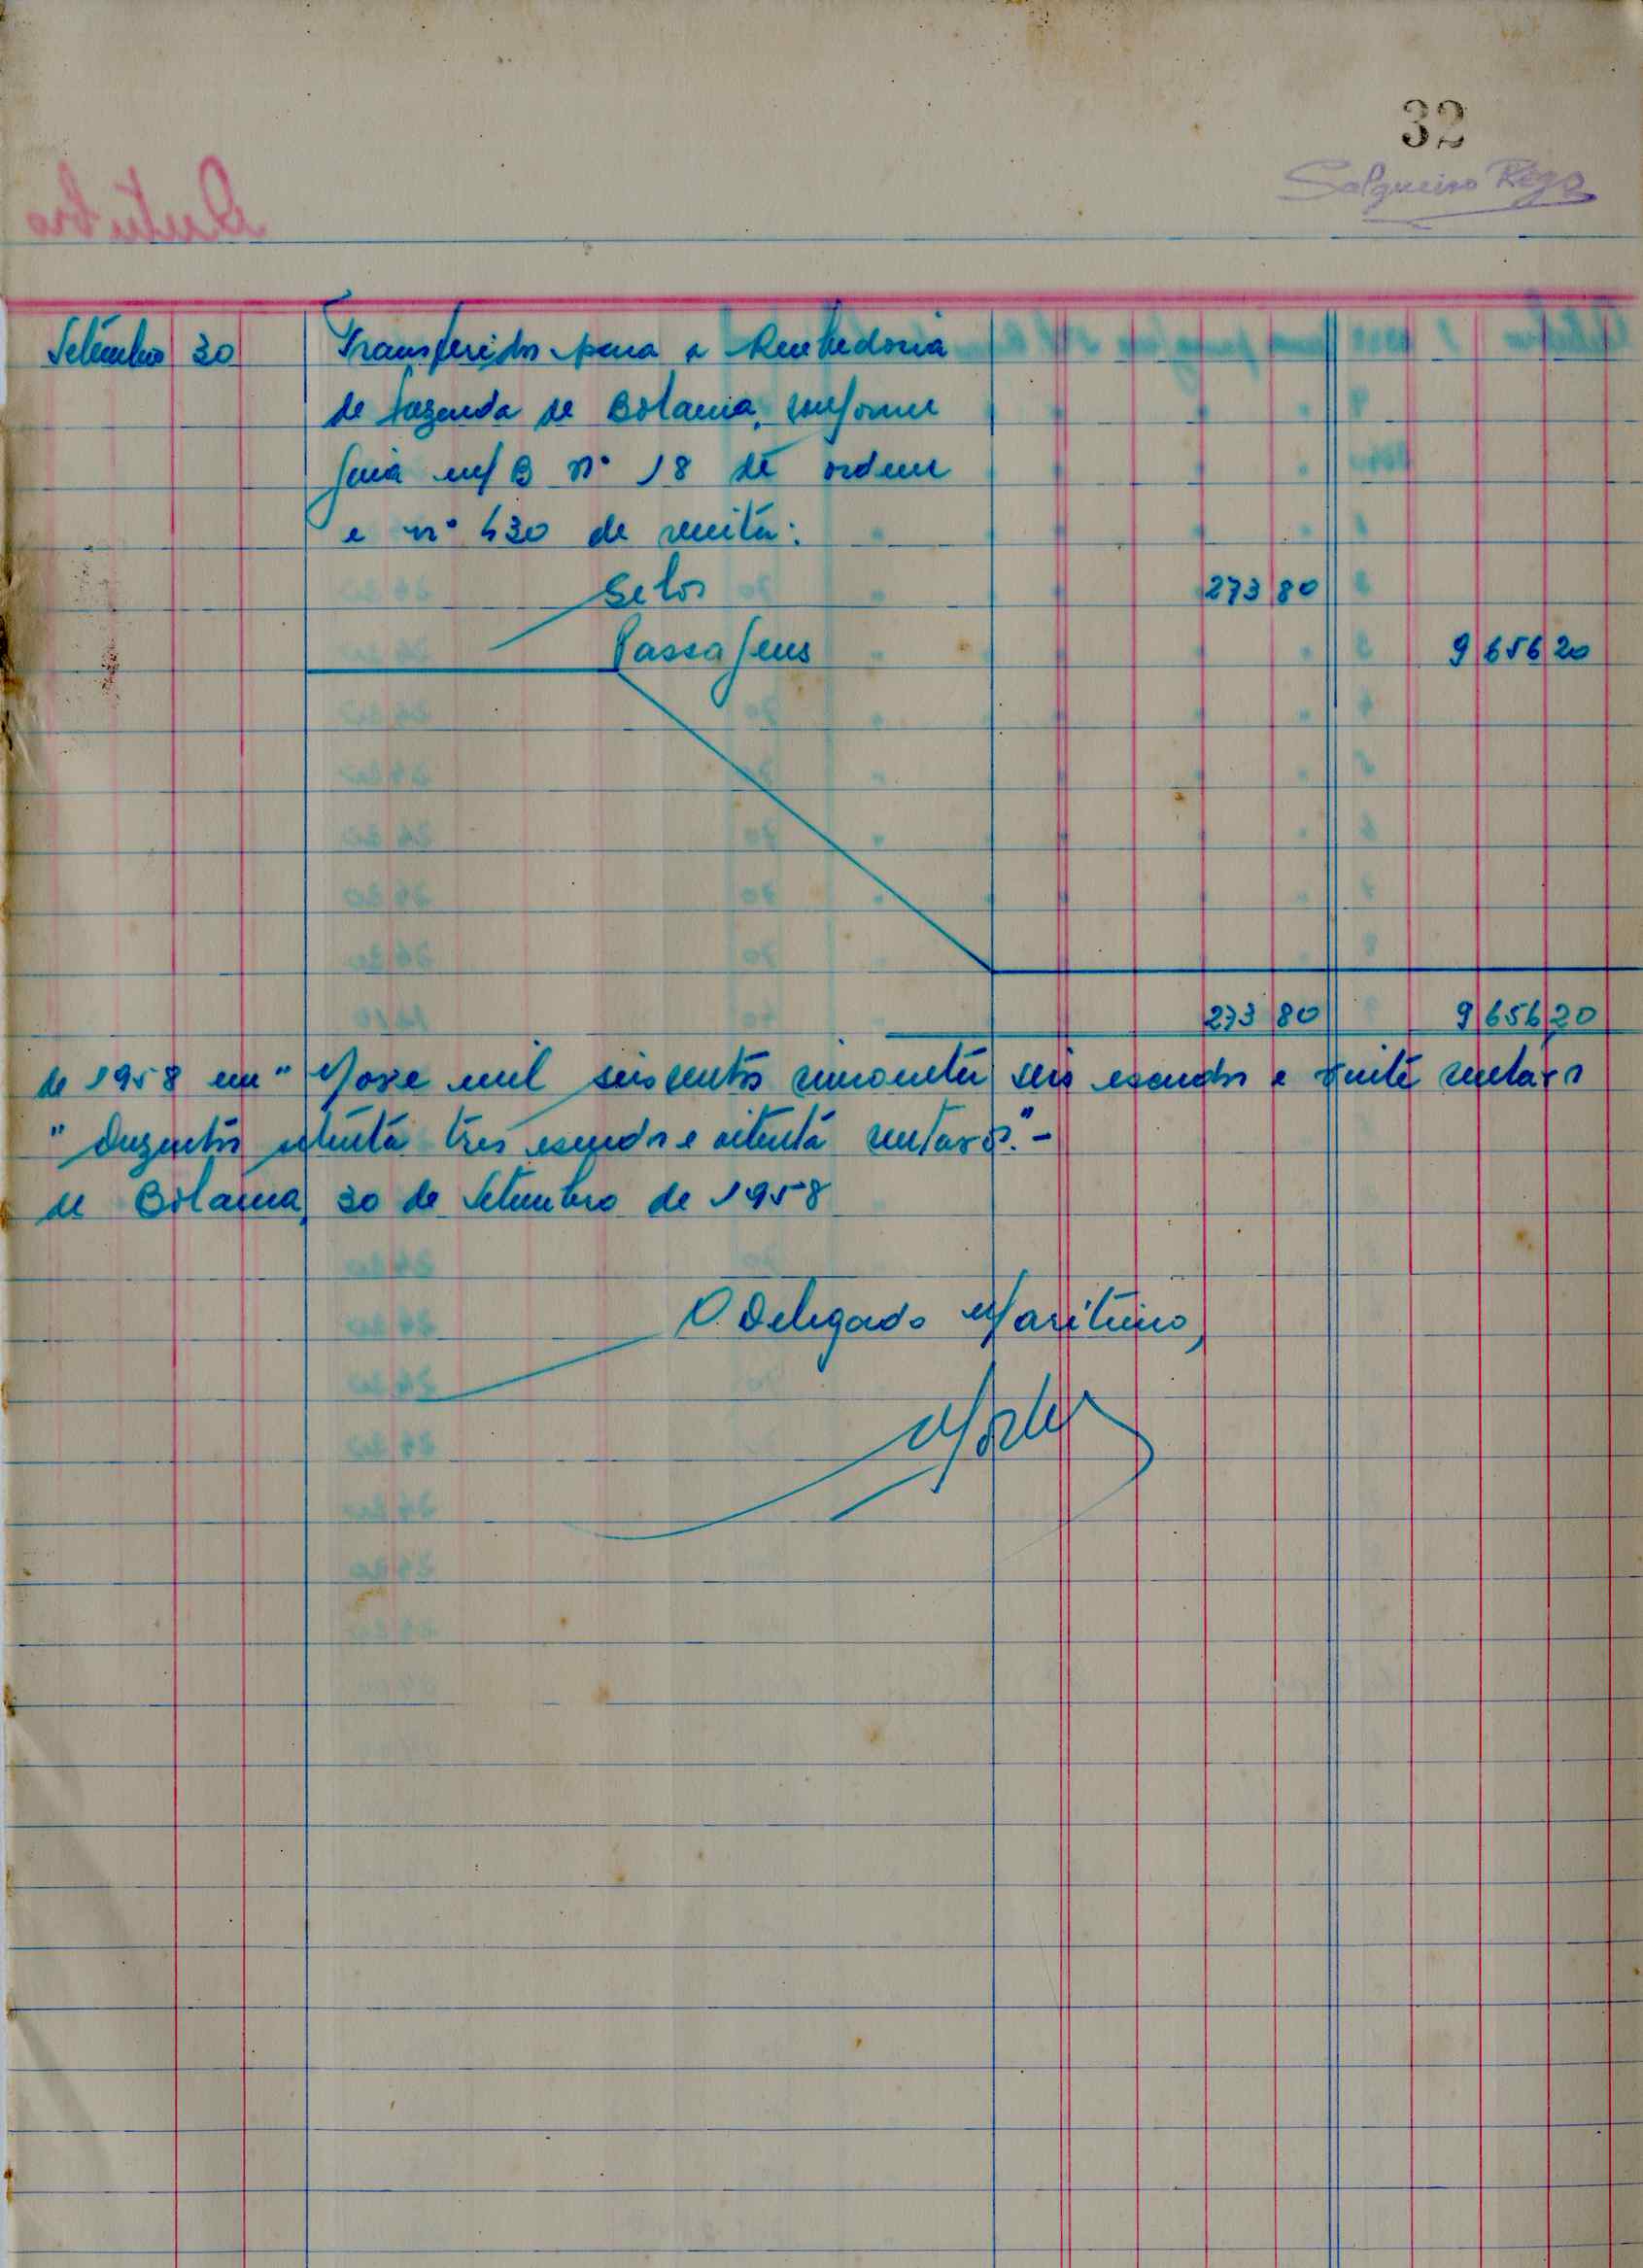 32
Salgueiro Rego
Setembro 30 Transferidos para a Recebedoria
de Fazenda de Bolama, conforme
guia m/ B nº 18 de ordem
e nº 430 de receita:
Selos 273 80
Passagens 9 656 20
273 80 9 656 20
de 1958 em "Nove mil seiscentos cincoenta seis escudos e vinte centavos
"Duzentos setenta três escudos e oitenta centavos." -
de Bolama, 30 de Setembro de 1958
O Delegado Marítimo,